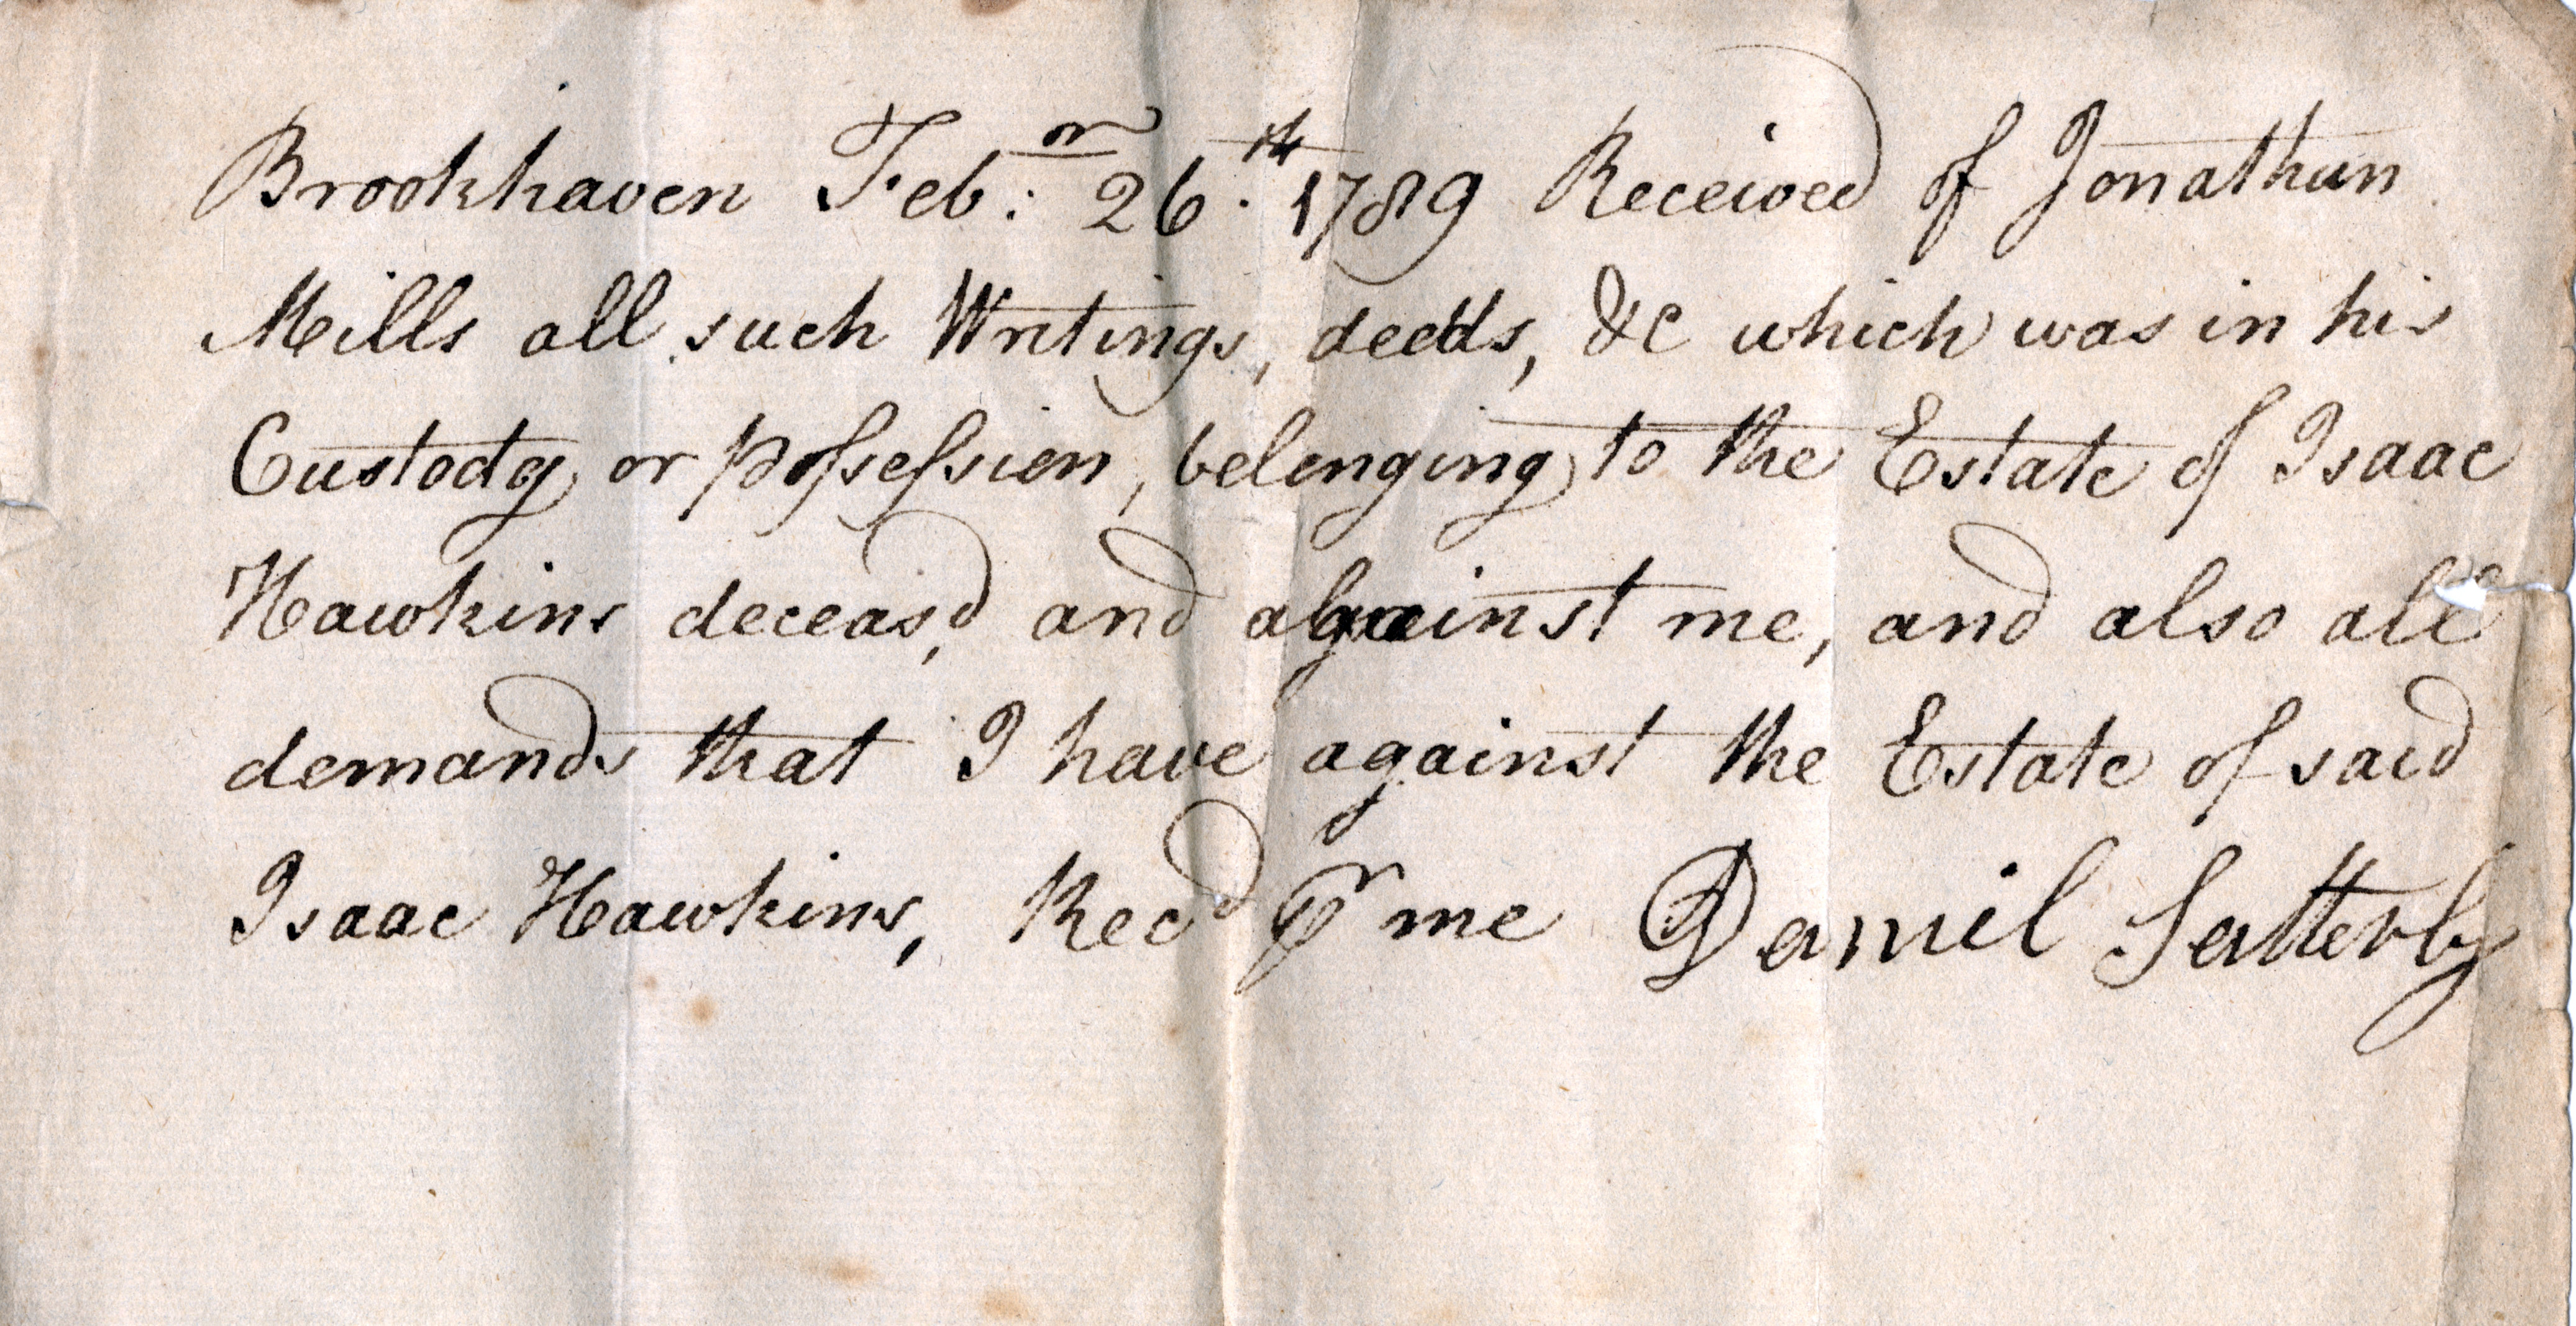 Brookhaven Feb:r 26th. 1789 Received of Jonathan
Mills all such Writings, deeds, &c which was in his
Custody or possession, belonging to the Estate of Isaac
Hawkins deceas,d and against me, and also all
demands that I have against the Estate of said
Isaac Hawkins, Recd pr me Daniel Satterly